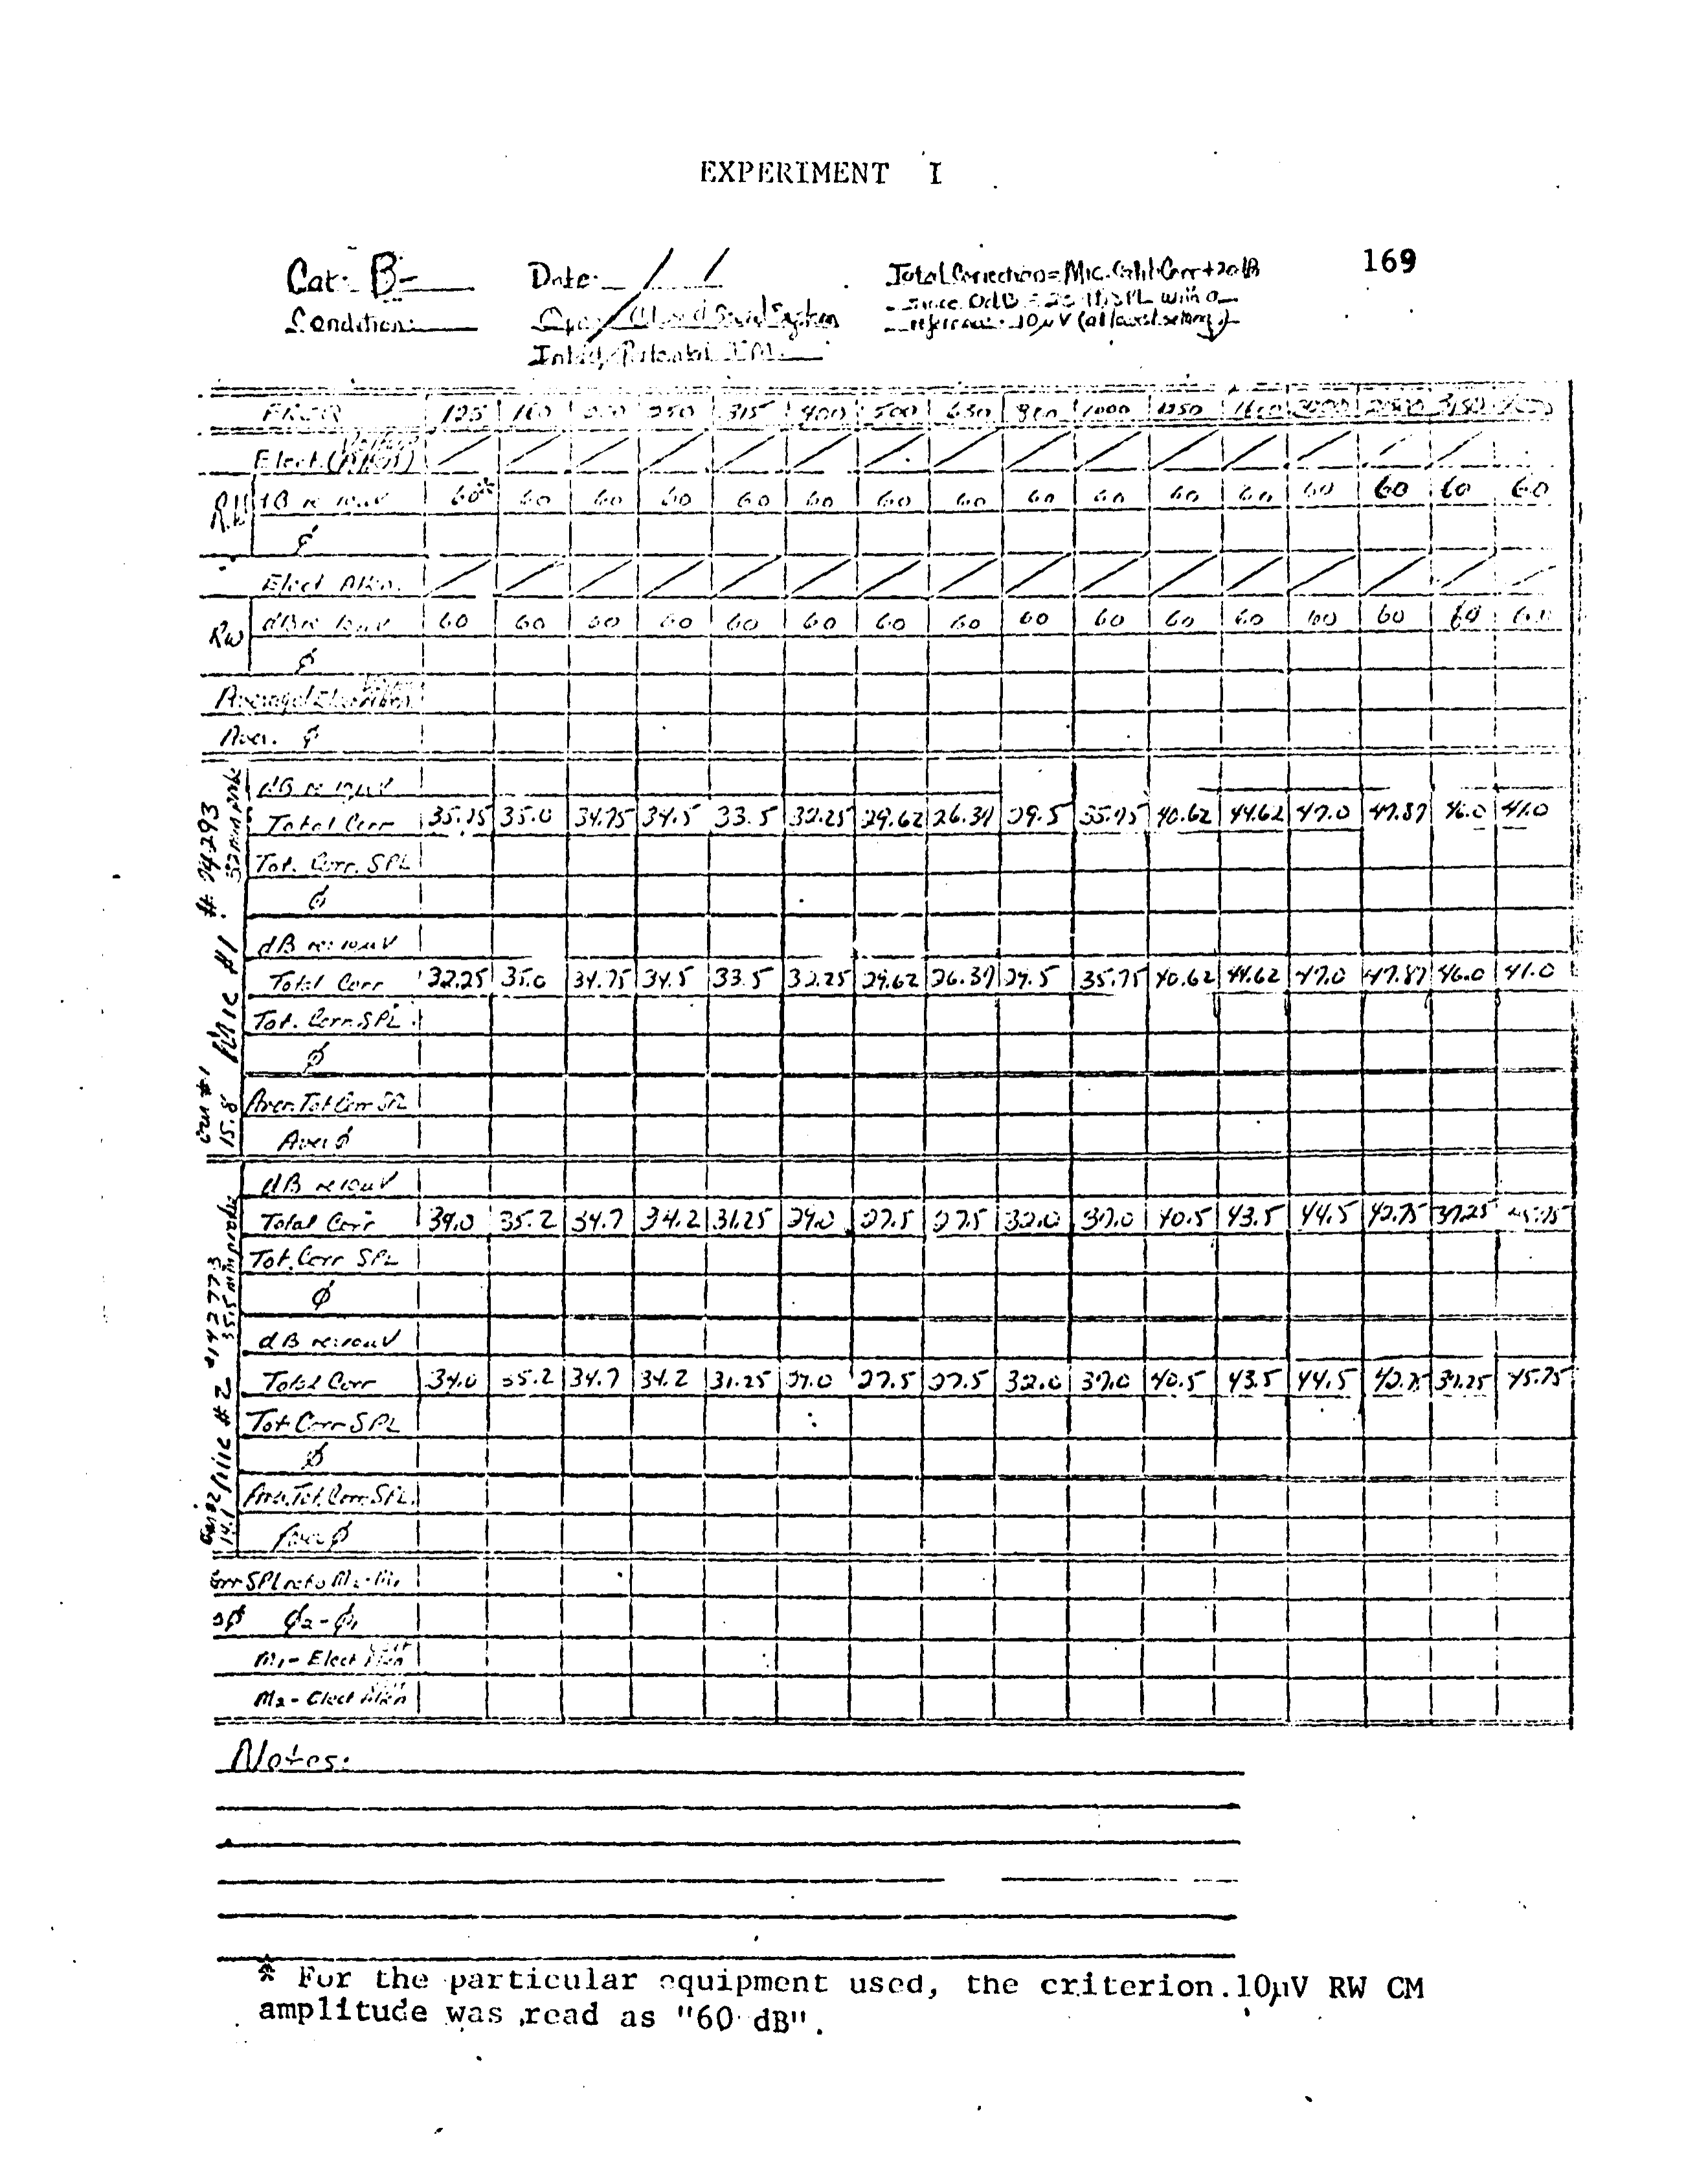 EXPERIMENT I
169
Cat: B-
Date: / /
Total Correction = Mic. Calib. Corr + 20 dB
Condition:
Closed Sound System
since 0dB = SPL with a
reference 10µV (at lowest setting)
FREQ 125 160 200 250 315 400 500 630 800 1000 1250 1600 2000 2500 3150
Elect.
RW dB re 10µV 60* 60 60 60 60 60 60 60 60 60 60 60 60 60 60 60
φ
Elect Attn.
RW dB re 10µV 60 60 60 60 60 60 60 60 60 60 60 60 60 60 60 60
φ
Average Elect
Aver. φ
Mic #1
dB re 10µV
Total Corr 35.0 34.75 34.5 33.5 32.25 29.62 26.37 29.5 35.75 40.62 44.62 47.0 47.87 46.0 41.0
Tot. Corr. SPL
φ
dB re: 10µV
Total Corr 32.25 35.0 34.75 34.5 33.5 32.25 29.62 26.37 29.5 35.75 40.62 44.62 47.0 47.87 46.0 41.0
Tot. Corr. SPL
φ
Aver. Tot Corr SPL
Aver φ
15.8
Mic #2
35.5 mm probe
dB re 10µV
Total Corr 34.0 35.2 34.7 34.2 31.25 29.0 27.5 27.5 32.0 37.0 40.5 43.5 44.5 42.75 37.25 45.75
Tot. Corr SPL
φ
dB re: 10µV
Total Corr 34.0 35.2 34.7 34.2 31.25 29.0 27.5 27.5 32.0 37.0 40.5 43.5 44.5 42.75 37.25 45.75
Tot Corr SPL
φ
Aver. Tot. Corr. SPL
Aver φ
14.1
φ2 - φ1
M1 - Elect Attn
M2 - Elect Attn
Notes:
* For the particular equipment used, the criterion 10µV RW CM
amplitude was read as "60 dB".